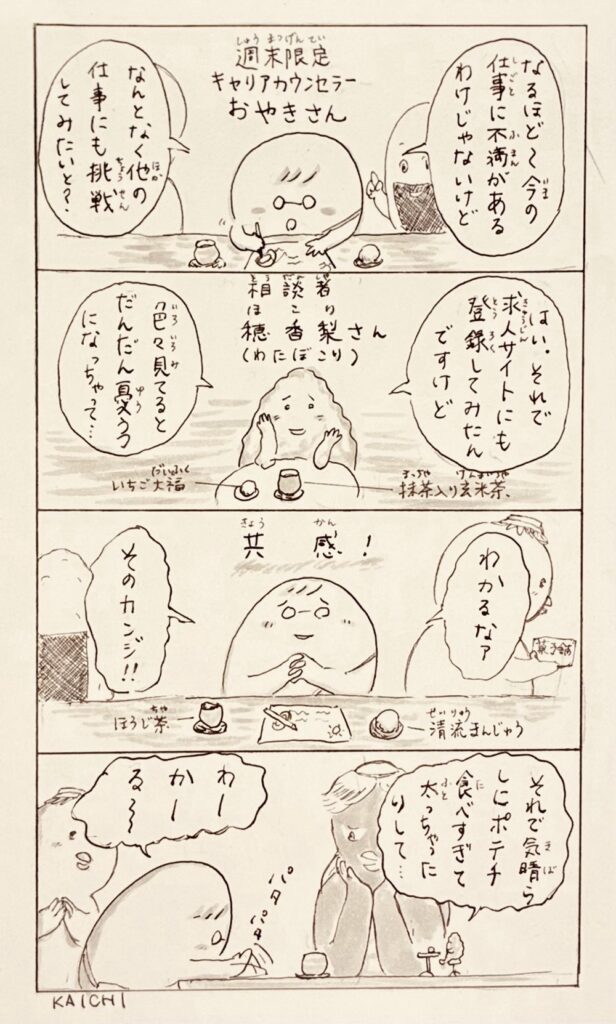 週末限定
キャリアカウンセラー
おやきさん
なるほど〜今の
仕事に不満がある
わけじゃないけど
なんとなく他の
仕事にも挑戦
してみたいと?
相談者
穂香梨さん
(わたぼこり)
はい。それで
求人サイトにも
登録してみたん
ですけど
色々見てると
だんだん憂うつ
になっちゃって…
いちご大福
抹茶入り玄米茶
共感!
わかるなァ
そのカンジ!!
ほうじ茶
清流まんじゅう
それで気晴ら
しにポテチ
食べすぎて
太っちゃった
りして…
わー
かー
る〜
パタパタ
KAICHI